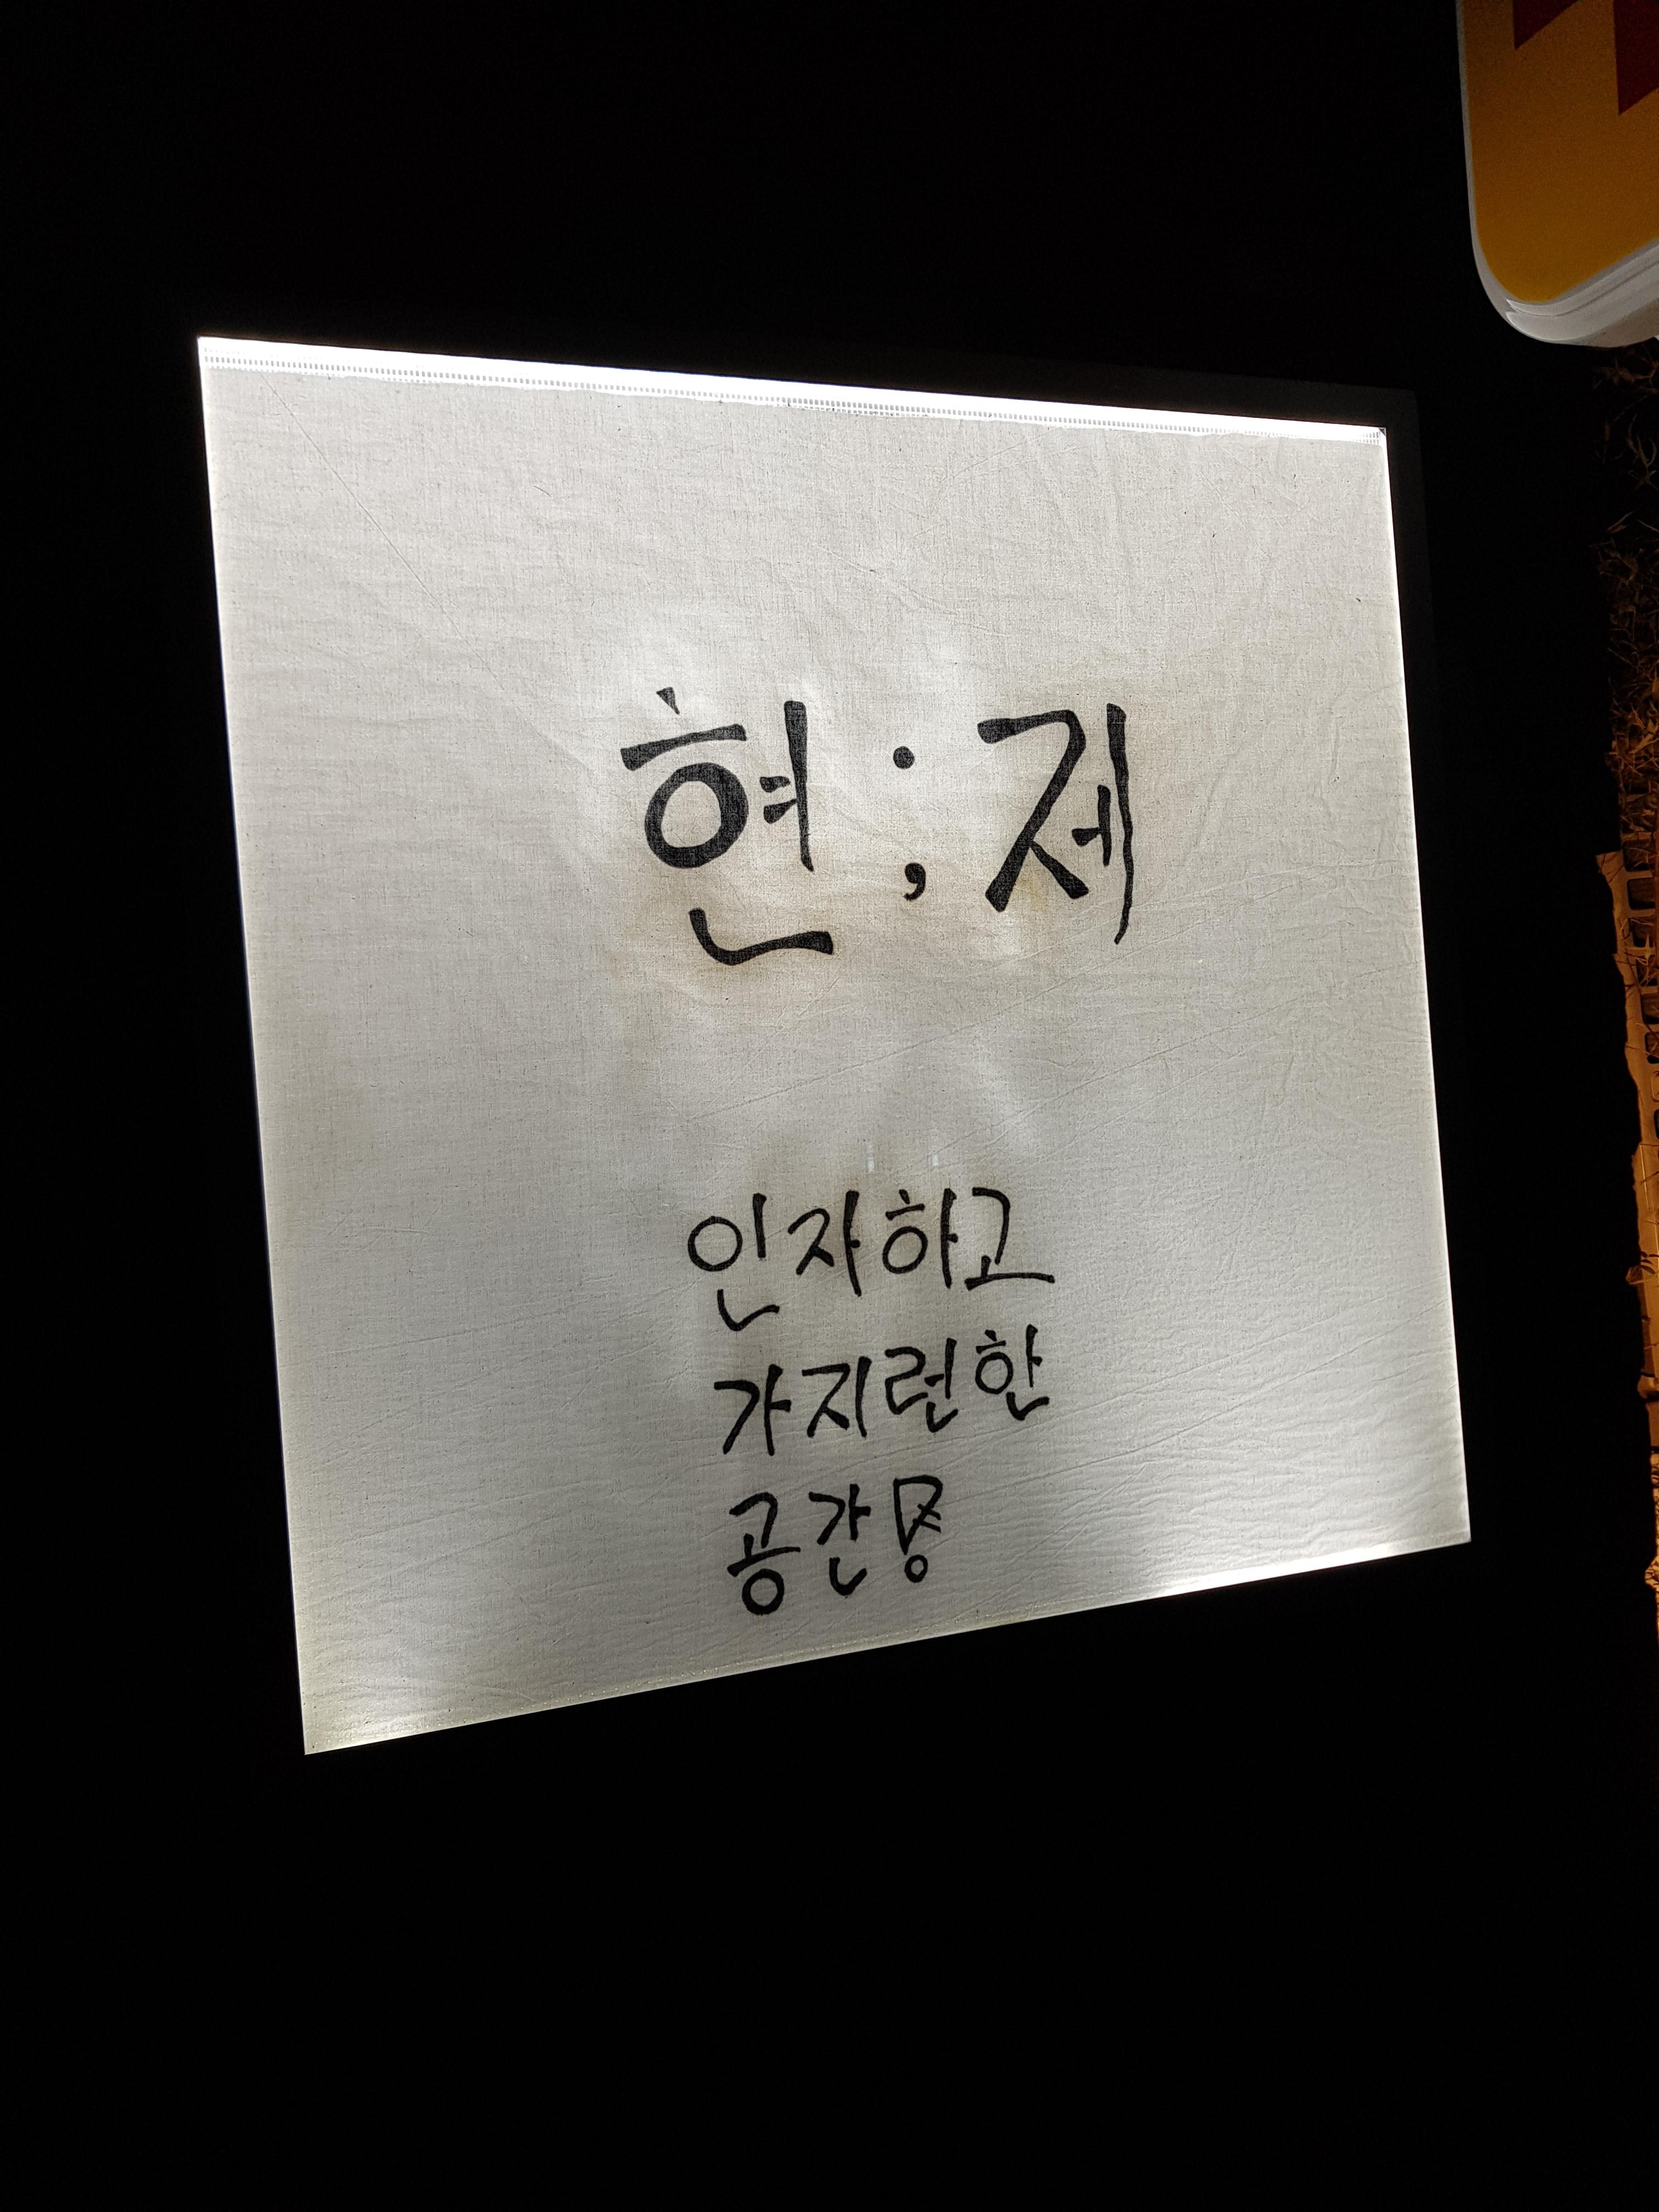 현;제
인자하고
가지런한
공간명